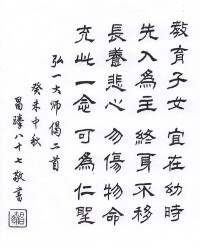 教育子女 宜在幼時
先入為主 終身不移
長養悲心 勿傷物命
充此一念 可為仁聖
弘一大師偈二首
癸未中秋
昌臻八十七敬書